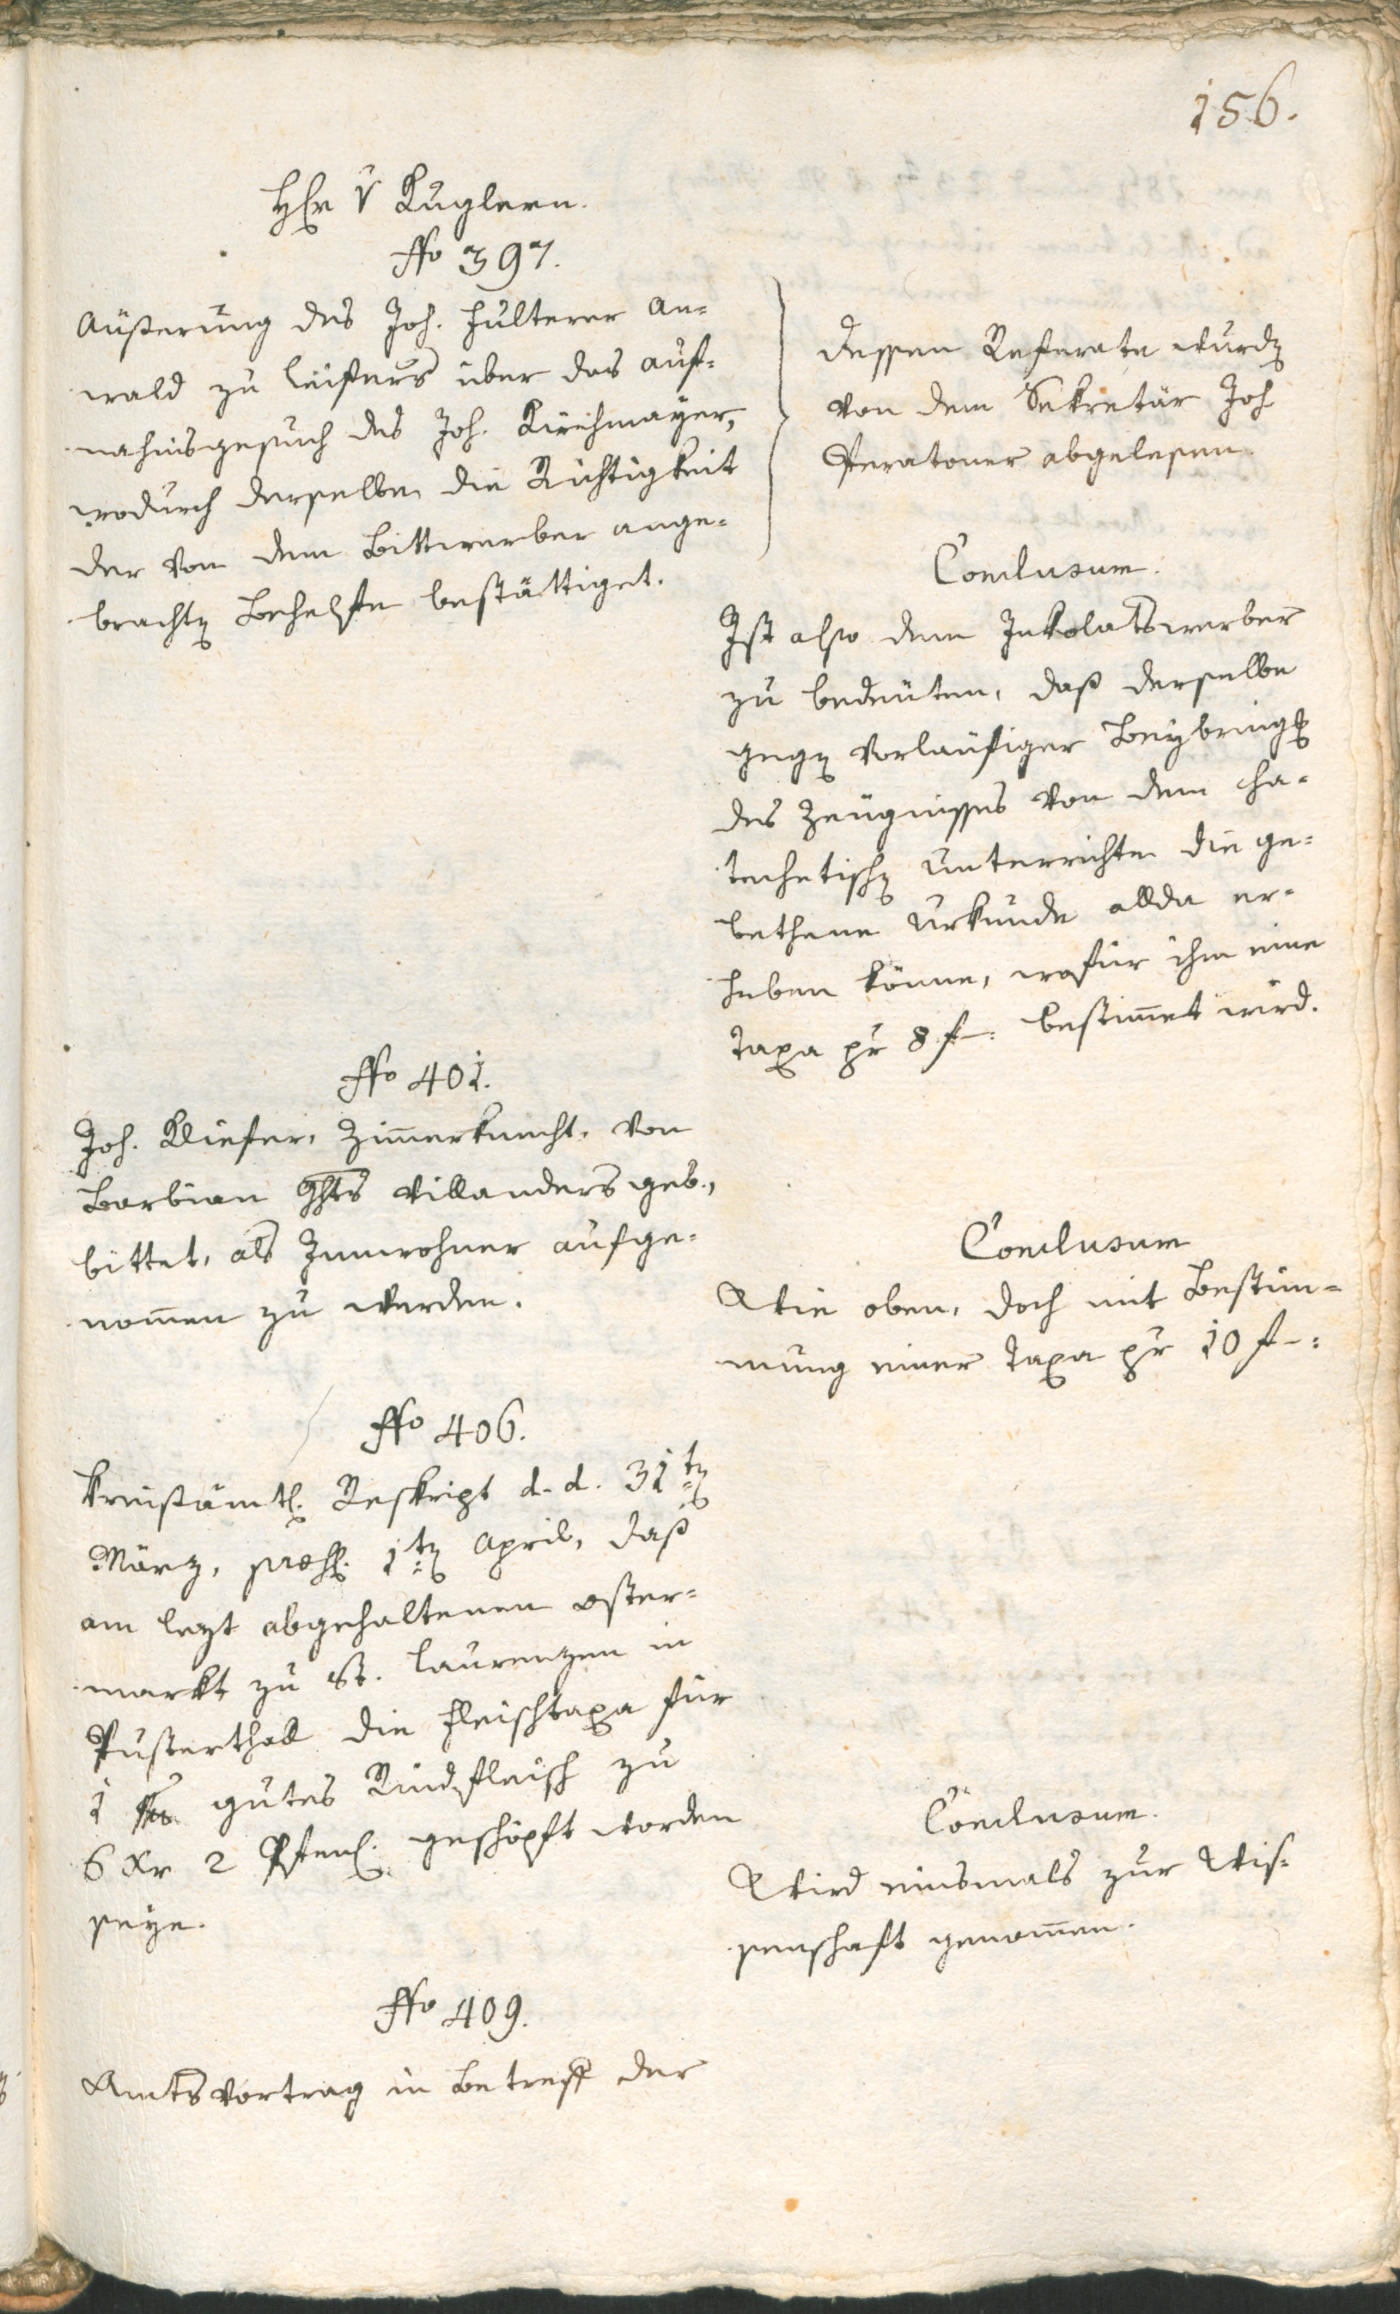 156.
Hr v Kuglern.
No 397.
Äußerung des Joh. Hulterer An-
wald zu Leifers über das Auf-
nahmsgesuch des Joh. Kirchmayer,
wodurch derselbe die Richtigkeit
der von dem Bittwerber ange-
bracht Behelfe bestättiget.
dessen Referate wurd
von dem Sekretär Joh
Peratoner abgelesen.
Conclusum.
Ist also dem Inkolatswerber
zu bedeuten, daß derselbe
geg vorläufiger Beybring
des Zeugnisses von dem Ka-
techetisch Unterrichte die ge-
bethene Urkunde allda er-
heben könne, wofür ihm eine
Taxa pr 8 f-: bestim̄et wird.
No 401.
Joh. Kliefer, Zim̄erknecht, von
Barbian Ghts Villanders geb.,
bittet, als Innwohner aufge-
nom̄en zu werden.
Conclusum
Wie oben, doch mit Bestim-
mung einer Taxa pr 10 f-:
No 406.
Kreisämtl. Reskript d. d. 31t
März, praes. 1t April, daß
am lezt abgehaltenen Oster-
markt zu St. Laurenzen in
Pusterthall die Fleischtaxa für
1 ℔ gutes Rindfleisch zu
6 Xr 2 Pfen. geschöpft worden
seye.
Conclusum.
Wird einsmals zur Wis-
senschaft genom̄en.
No 409.
Amtsvortrag in Betreff der